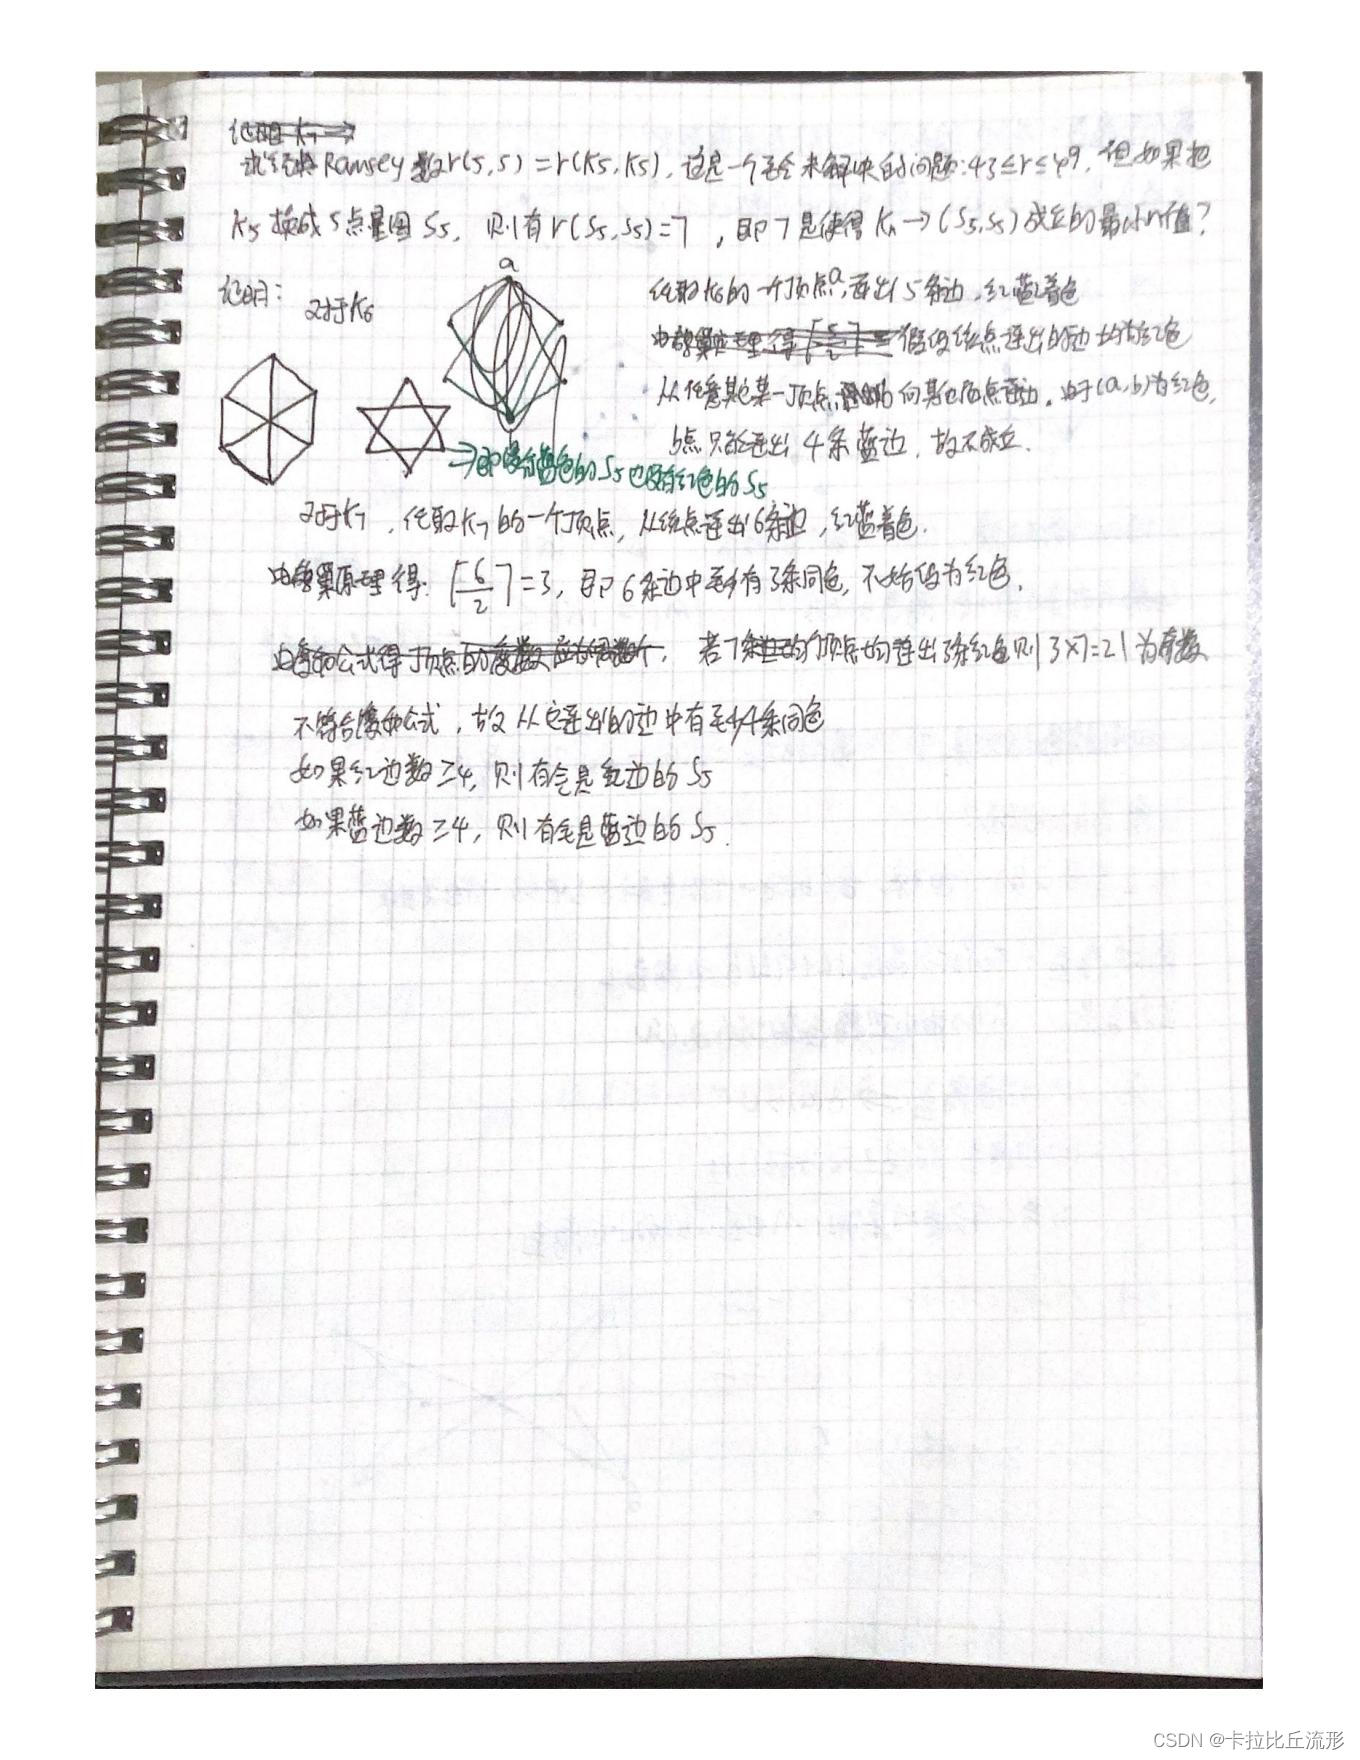 试求经典Ramsey数r(5,5)=r(K5,K5),这是一个至今未解决的问题:43≤r≤49,但如果把
K5换成5点星图S5,则有r(S5,S5)=7,即7是使得Kn→(S5,S5)成立的最小n值?
a
证明:对于K6
任取K6的一个顶点a,连出5条边,红蓝着色
假设该点连出的边均为红色
从任意其它某一顶点向其它顶点连边,由于(a,b)为红色,
b点只能连出4条蓝边,故不成立.
→即没有蓝色的S5也没有红色的S5
对于K7,任取K7的一个顶点,从该点连出6条边,红蓝着色.
由鸽巢原理得:⌈6/2⌉=3,即6条边中至少有3条同色,不妨设为红色.
由度和公式得 若7个顶点均连出3条红色则3×7=21为奇数
不符合度和公式,故从它连出的边中有至少4条同色
如果红边数≥4,则有全是红边的S5
如果蓝边数≥4,则有全是蓝边的S5.
CSDN @卡拉比丘流形